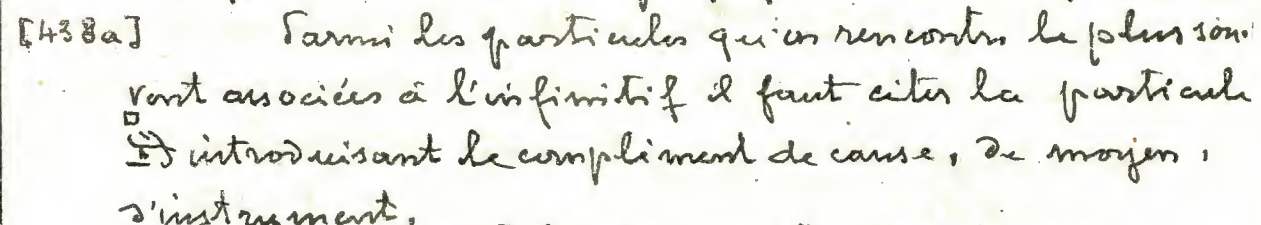 [438a] Parmi les particules qu'on rencontre le plus sou-
vent associées à l'infinitif il faut citer la particule
introduisant le compliment de cause, de moyen,
d'instrument.